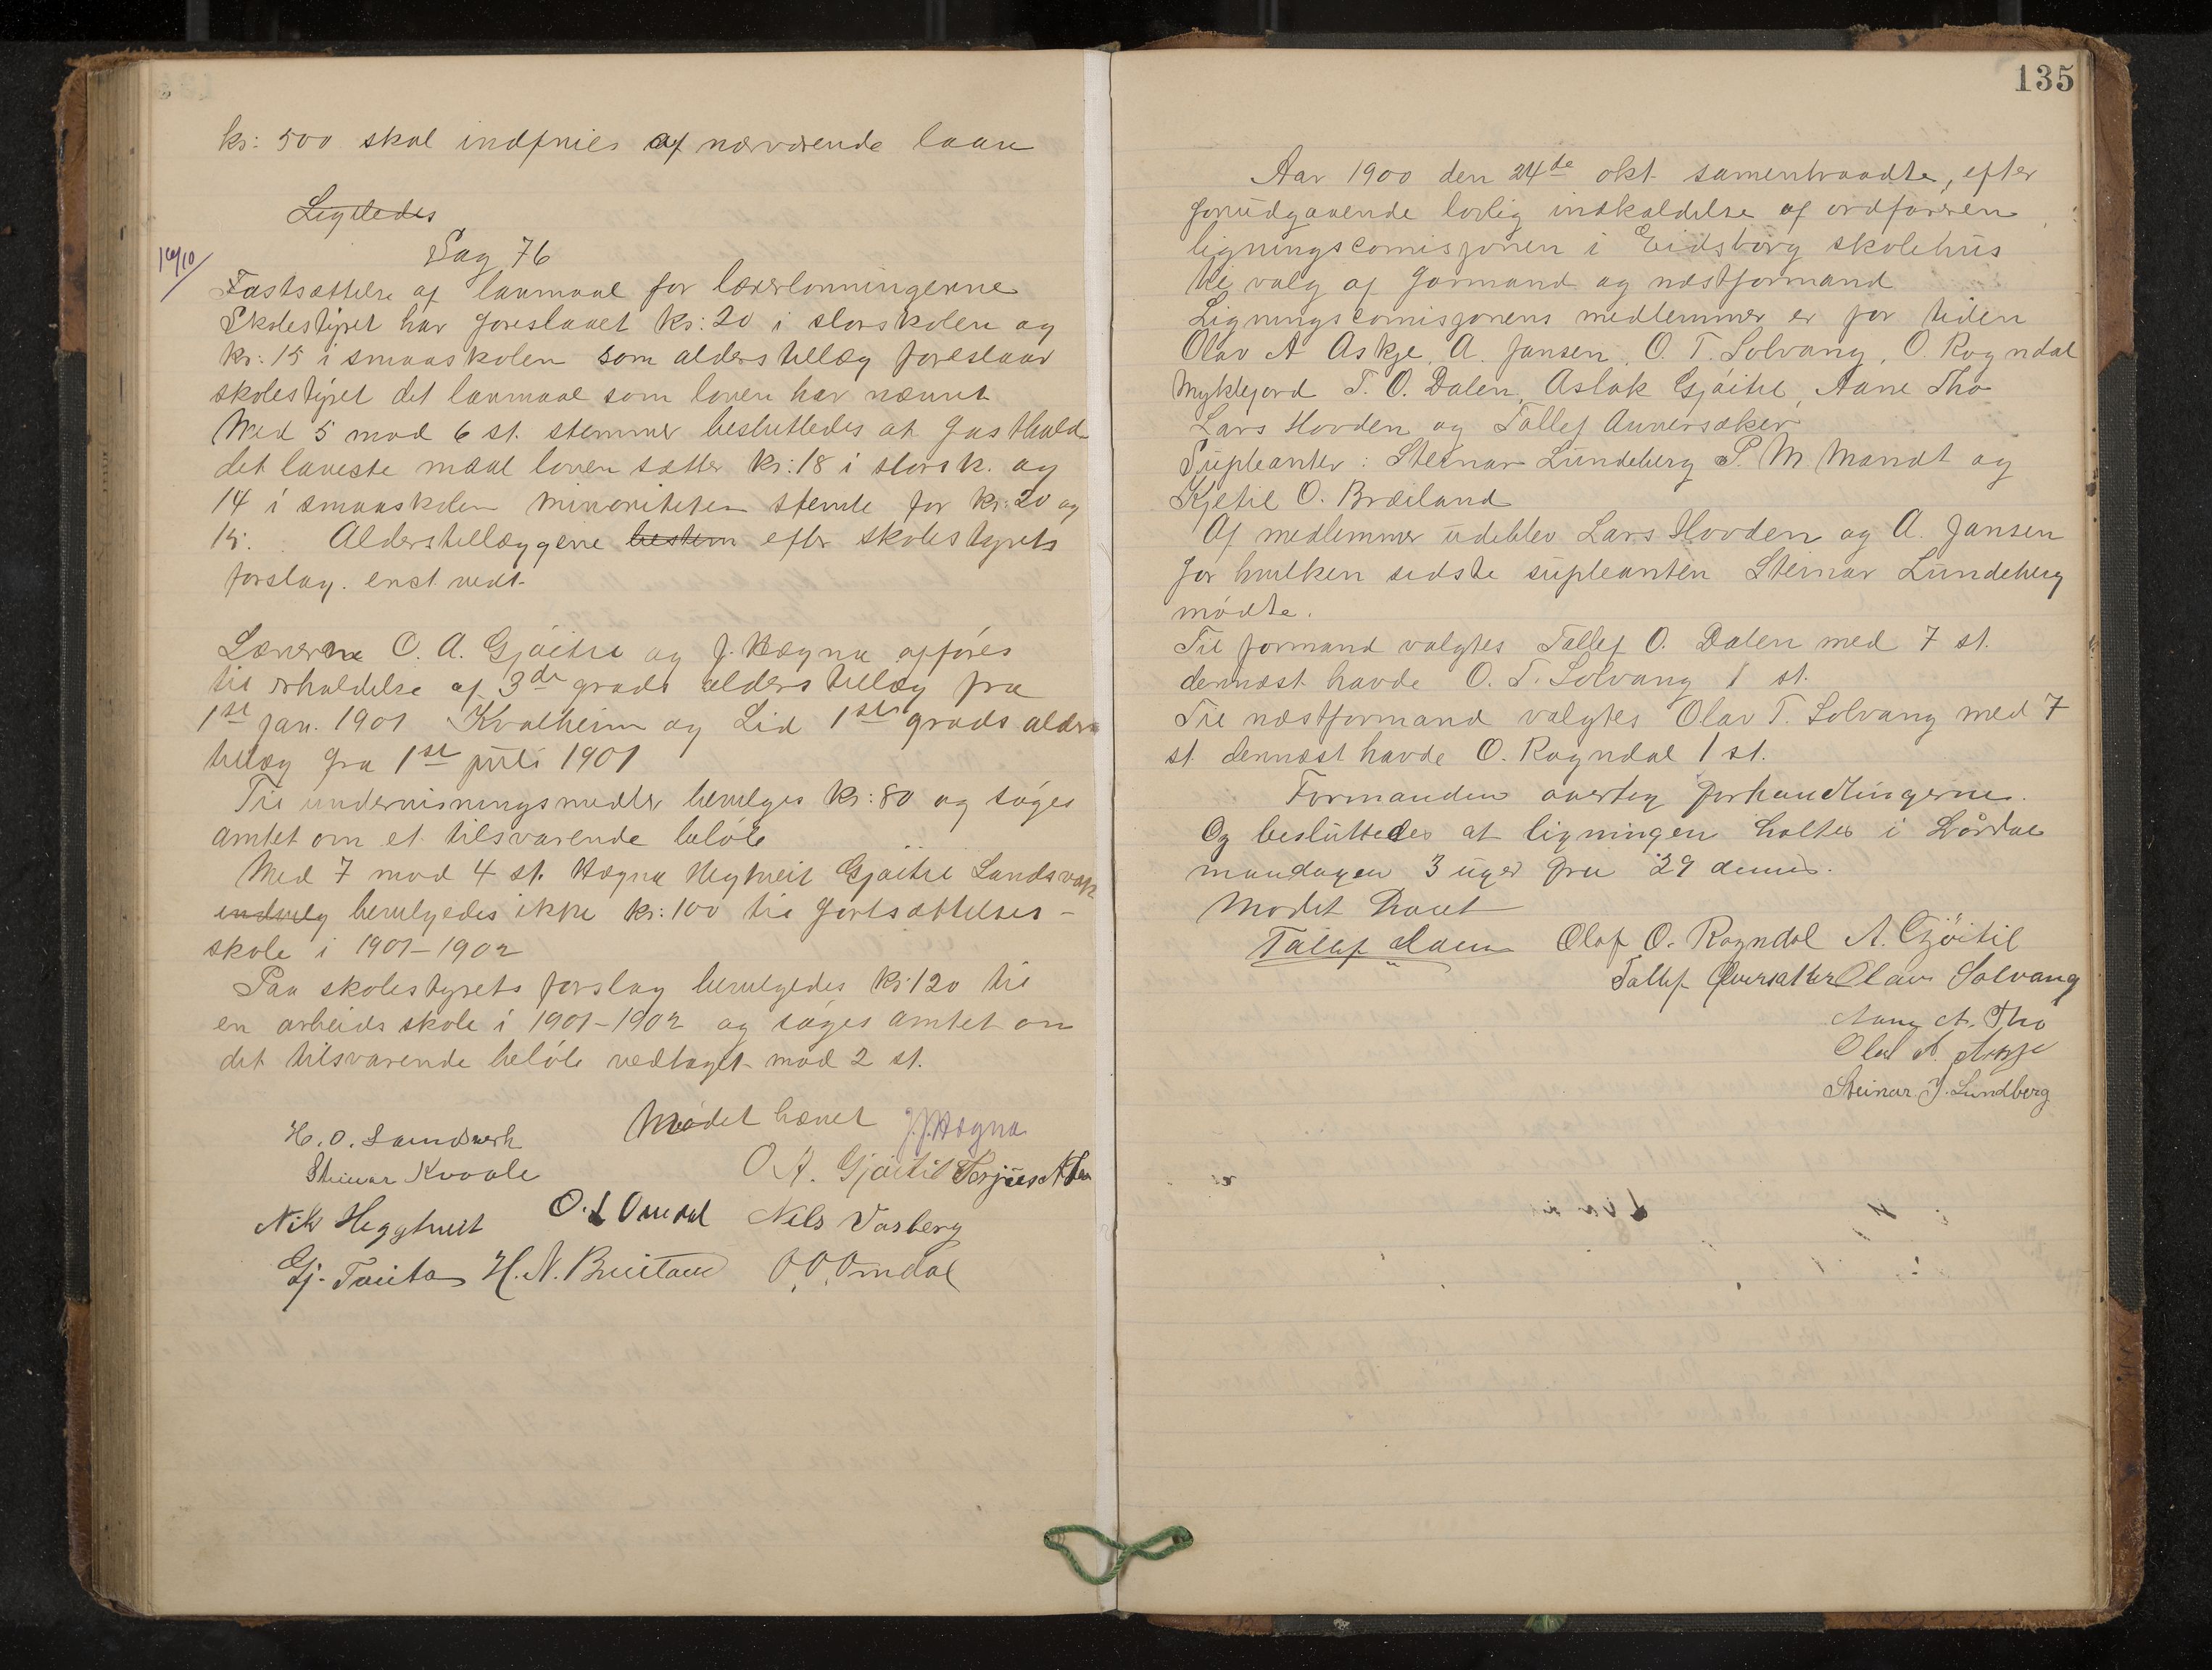 kr: 500 skal indfries af nærværende laan
Ligeledes
Sag 76
16/10
Fastsættelse af lavmaal for lærerlønningerne
Skolestyret har foreslaaet kr: 20 i storskolen og
kr: 15 i smaaskolen som alderstillæg foreslaar
skolestyret det lavmaal som loven har nævnt
Med 5 mod 6 st. stemmer besluttedes at fasthold
det laveste maal loven sætter kr: 18 i storsk. og
14 i smaaskolen Minoriteten stemte for kr: 20 og
15. Alderstillæggene bestem efter skolestyrets
forslag. enst. vedt.
Lærerne O. A. Gjöitil og J. Hægna opføres
til erholdelse af 3de grads alderstillæg fra
1ste jan. 1901 Kvalheim og Lid 1ste grads alders
tillæg fra 1ste juli 1901
Til undervisningsmidler bevilges kr: 80 og söges
amtet om et tilsvarende belöb
Med 7 mod 4 st. Hægna Hegtveit Gjöitil Landsverk
indvilg bevilgedes ikke kr: 100 til fortsættelses-
skole i 1901-1902
Paa skolestyrets forslag bevilgedes kr 120 til
en arbeidsskole i 1901-1902 og söges amtet om
det tilsvarende belöb vedtaget mod 2 st.
Mödet hævet J. J. Hægna
H. O. Landsverk
Steinar Kvaale O. A. Gjöitil Terjus
Nik Heggtveit O. L Omdal Nils Vasberg
Gj. Tveito H. N. Breiland O. O. Omdal
135
Aar 1900 den 24de okt. samentraadte, efter
forudgaaende lovlig indkaldelse af ordføreren
ligningscomisjonen i Eidsborg skolehus
til valg af formand og næstformand
Ligningscomisjonens medlemmer er for tiden
Olav A Askje, A. Jansen, O. T. Solvang, O. Rogndal
Myklejord T. O. Dalen, Aslak Gjöitil, Aane Tho
Lars Hovden og Tallef
Supleanter: Steinar Lundeberg P. M. Mandt og
Kjetil O. Bræiland
Af medlemmer udeblev Lars Hovden og A. Jansen
for hvilken sidste supleanten Steinar Lundeberg
mødte.
Til formand valgtes Tallef O. Dalen med 7 st.
dernæst havde O. T. Solvang 1 st.
Til næstformand valgtes Olav T. Solvang med 7
st. dernæst havde O. Rogndal 1 st.
Formanden overtog forhandlingerne.
Og besluttedes at ligningen holtes i Lårdal
mandagen 3 uger fra 29 dennes.
Mødet hævet
Tallef Dalen Olaf O. Rogndal A. Gjöitil
Tallef Olav Solvang
Aane A. Tho
Olav A. Askje
Steinar J. Lundberg